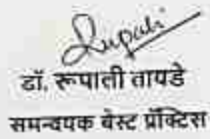 Rupali
डॉ. रूपाती तायडे
समन्वयक बेस्ट प्रॅक्टिस